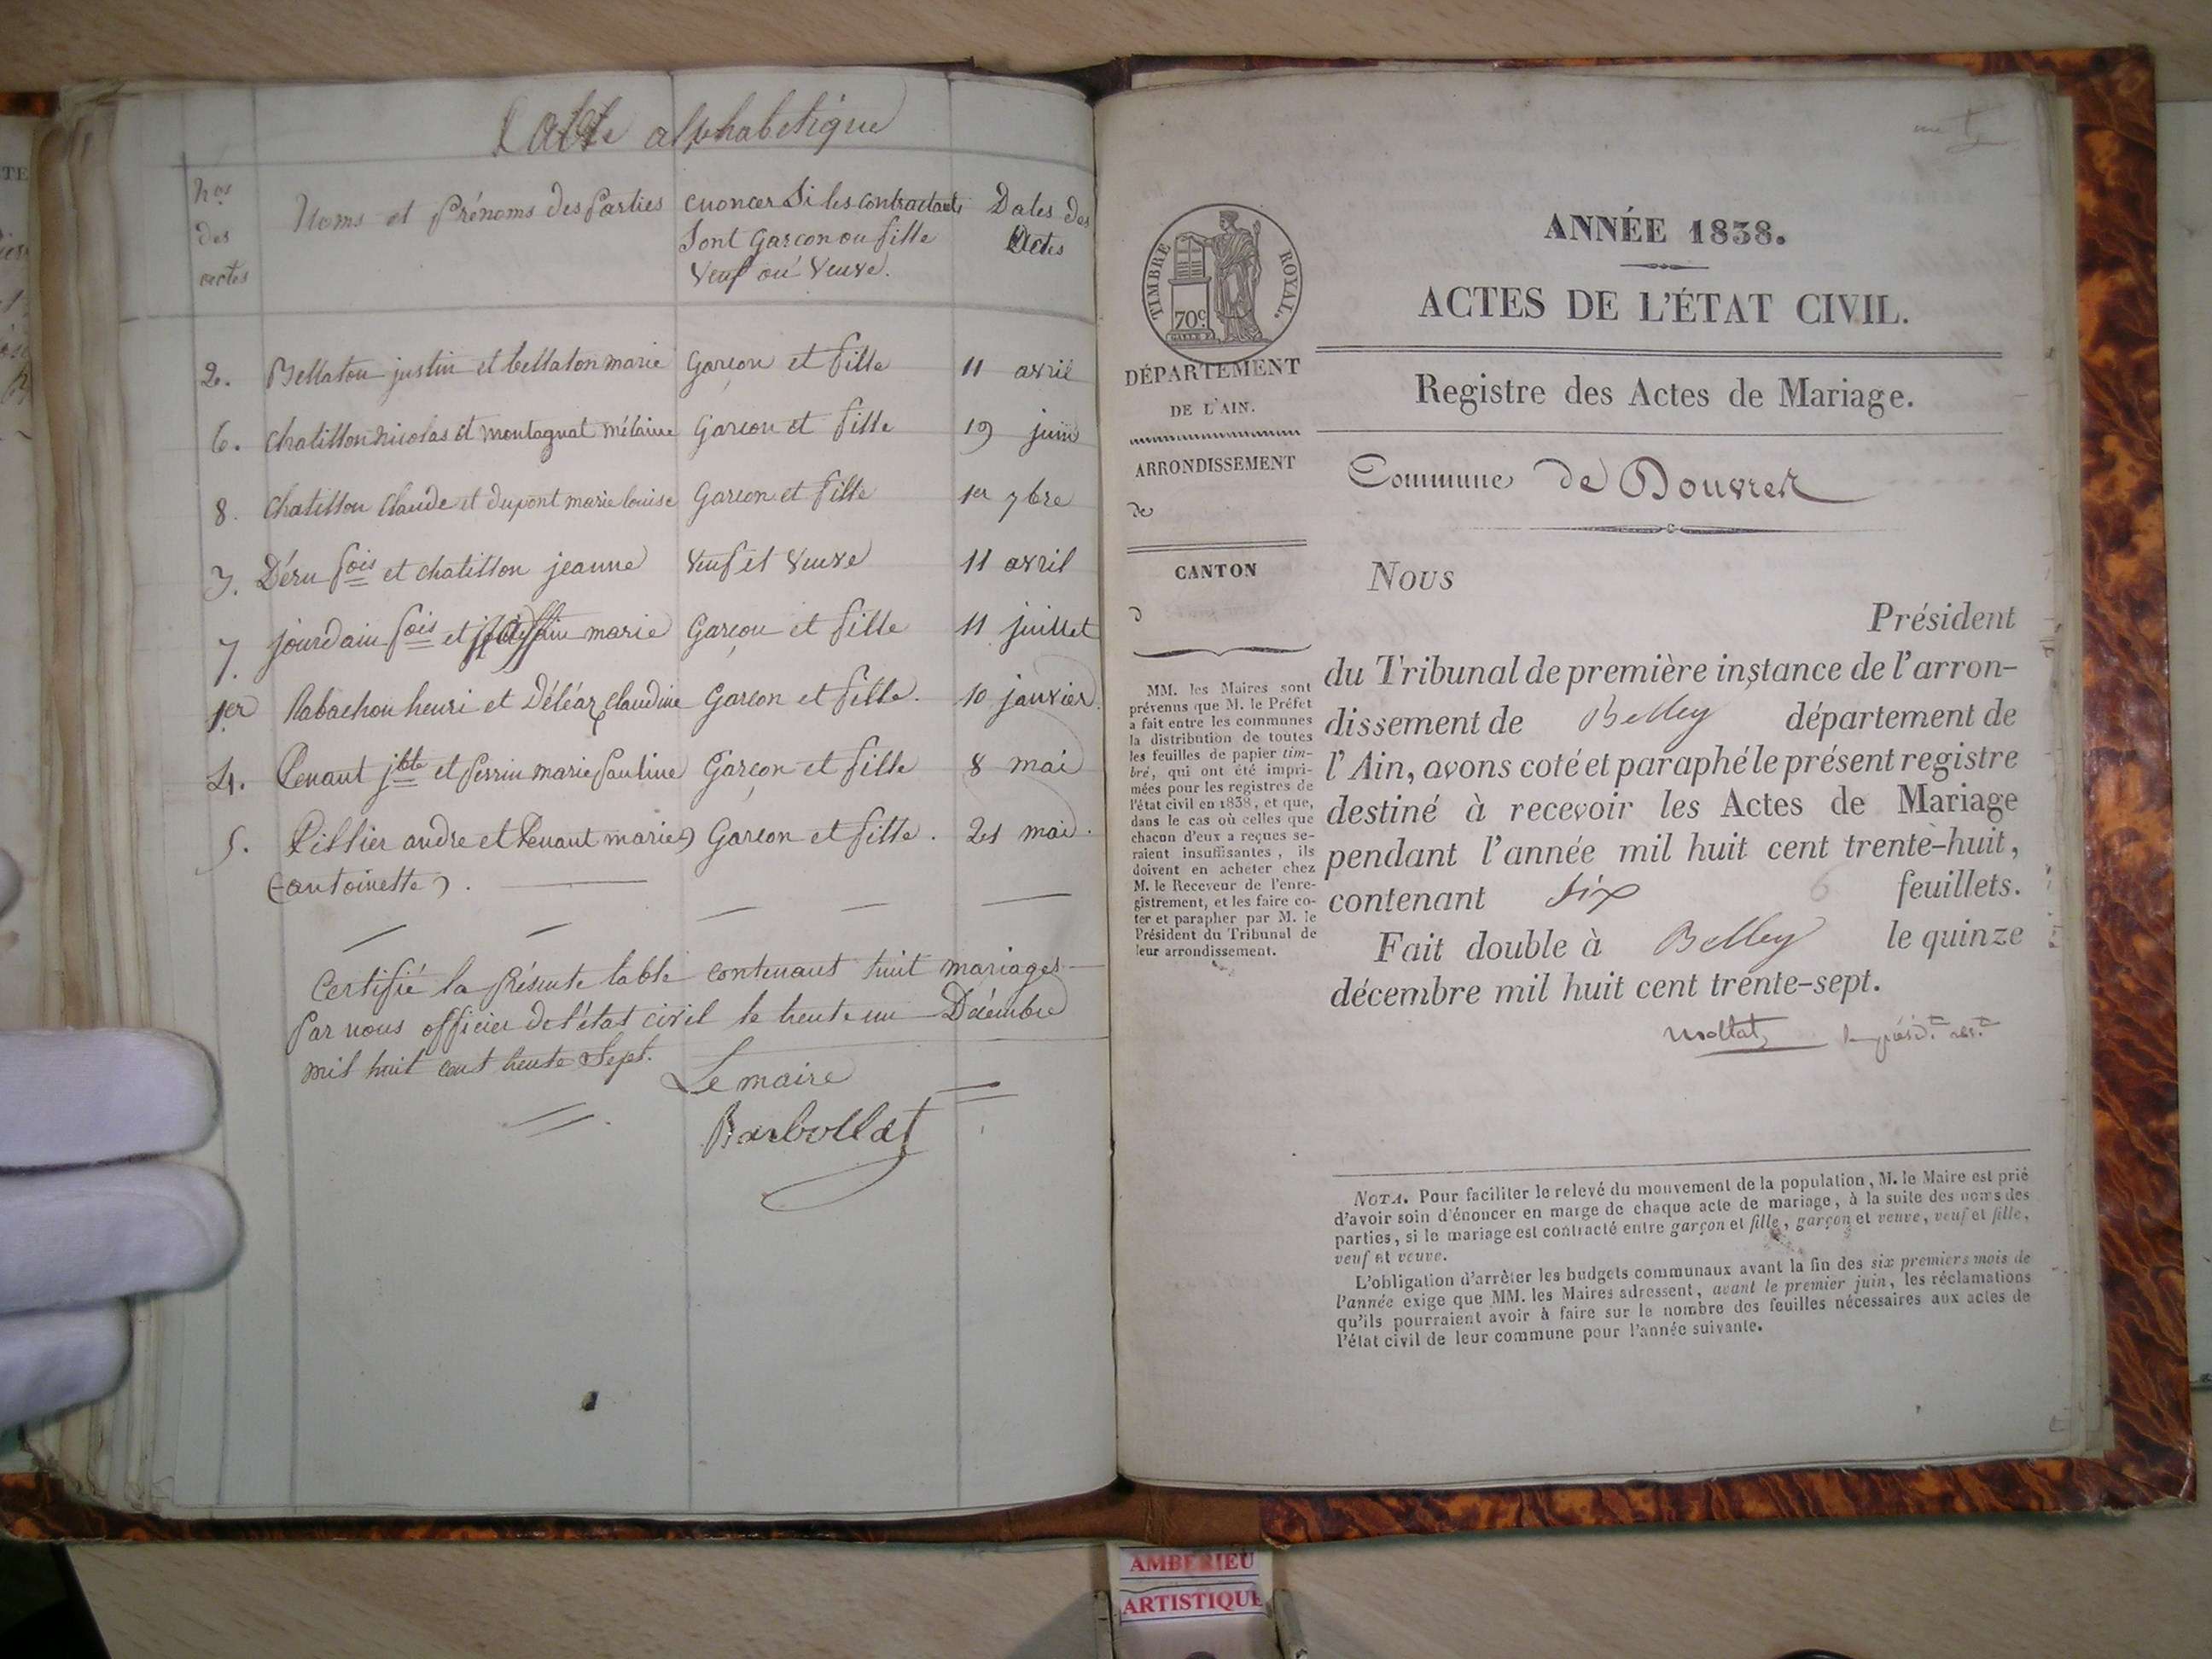 Table alphabetique
nos des actes
Noms et Prénoms des Parties
enoncer Si les contractants Sont Garcon ou fille Veuf ou Veuve.
Dates des Actes
2. Bellaton justin et bellaton marie Garçon et fille 11 avril
6. chatillon nicolas et montagnat mélanie Garcon et fille 19 juin
8. chatillon Claude et dupont marie louise Garcon et fille 1er 7bre
3. Déru fois et chatillon jeanne Veuf et Veuve 11 avril
7. jourdain fois et marie Garçon et fille 11 juillet
1er Rabachon henri et Déléaz Claudine Garcon et fille. 10 janvier.
4. Tenant jbte et Perrin marie Pauline Garçon et fille 8 mai
5. Tillier andre et Tenant marie Garcon et fille. 21 mai.
(antoinette).
Certifié la Présente table contenant huit mariages
Par nous officier de l'état civil le trente un Décembre
mil huit cent trente Sept.
Le maire
Barbollat
TIMBRE ROYAL.
70c
DÉPARTEMENT
DE L'AIN.
ARRONDISSEMENT
de
CANTON
d
MM. les Maires sont
prévenus que M. le Préfet
a fait entre les communes
la distribution de toutes
les feuilles de papier tim-
bré, qui ont été impri-
mées pour les registres de
l'état civil en 1838, et que,
dans le cas où celles que
chacun d'eux a reçues se-
raient insuffisantes, ils
doivent en acheter chez
M. le Receveur de l'enre-
gistrement, et les faire co-
ter et parapher par M. le
Président du Tribunal de
leur arrondissement.
ANNÉE 1838.
ACTES DE L'ÉTAT CIVIL.
Registre des Actes de Mariage.
Commune de Douvres
Nous
Président
du Tribunal de première instance de l'arron-
dissement de Belley département de
l'Ain, avons coté et paraphé le présent registre
destiné à recevoir les Actes de Mariage
pendant l'année mil huit cent trente-huit,
contenant six 6 feuillets.
Fait double à Belley le quinze
décembre mil huit cent trente-sept.
NOTA. Pour faciliter le relevé du mouvement de la population, M. le Maire est prié
d'avoir soin d'énoncer en marge de chaque acte de mariage, à la suite des noms des
parties, si le mariage est contracté entre garçon et fille, garçon et veuve, veuf et fille,
veuf et veuve.
L'obligation d'arrêter les budgets communaux avant la fin des six premiers mois de
l'année exige que MM. les Maires adressent, avant le premier juin, les réclamations
qu'ils pourraient avoir à faire sur le nombre des feuilles nécessaires aux actes de
l'état civil de leur commune pour l'année suivante.
AMBERIEU
ARTISTIQUE